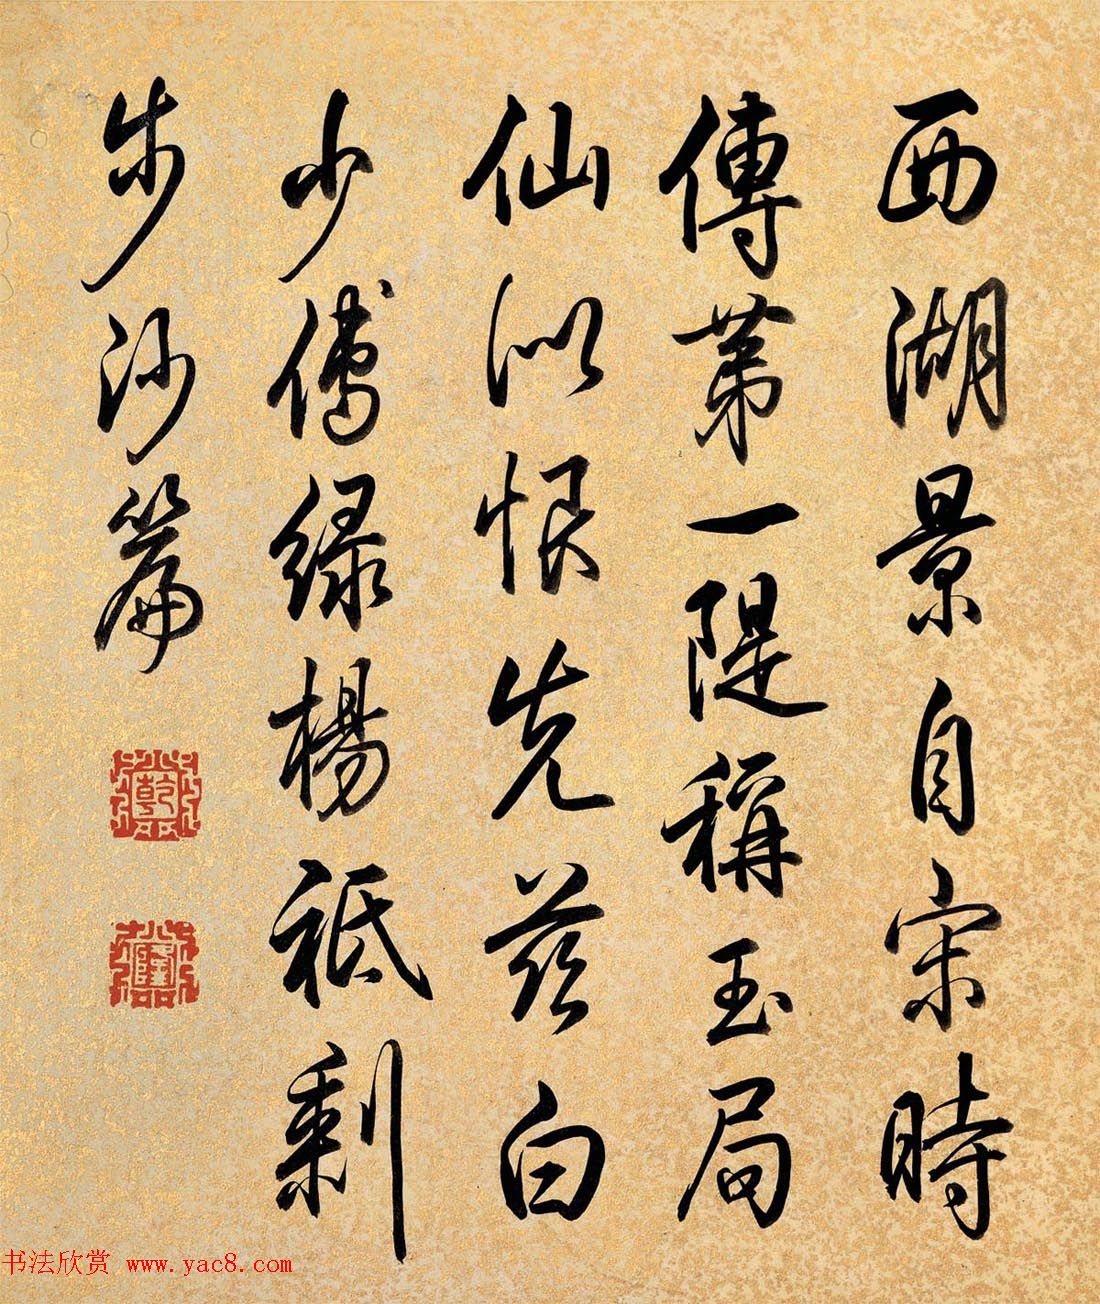 西湖景自宋時
傳第一隄稱玉局
仙似恨先茲白
少傅绿楊祇剩
步沙篇
乾
隆
书法欣赏 www.yac8.com